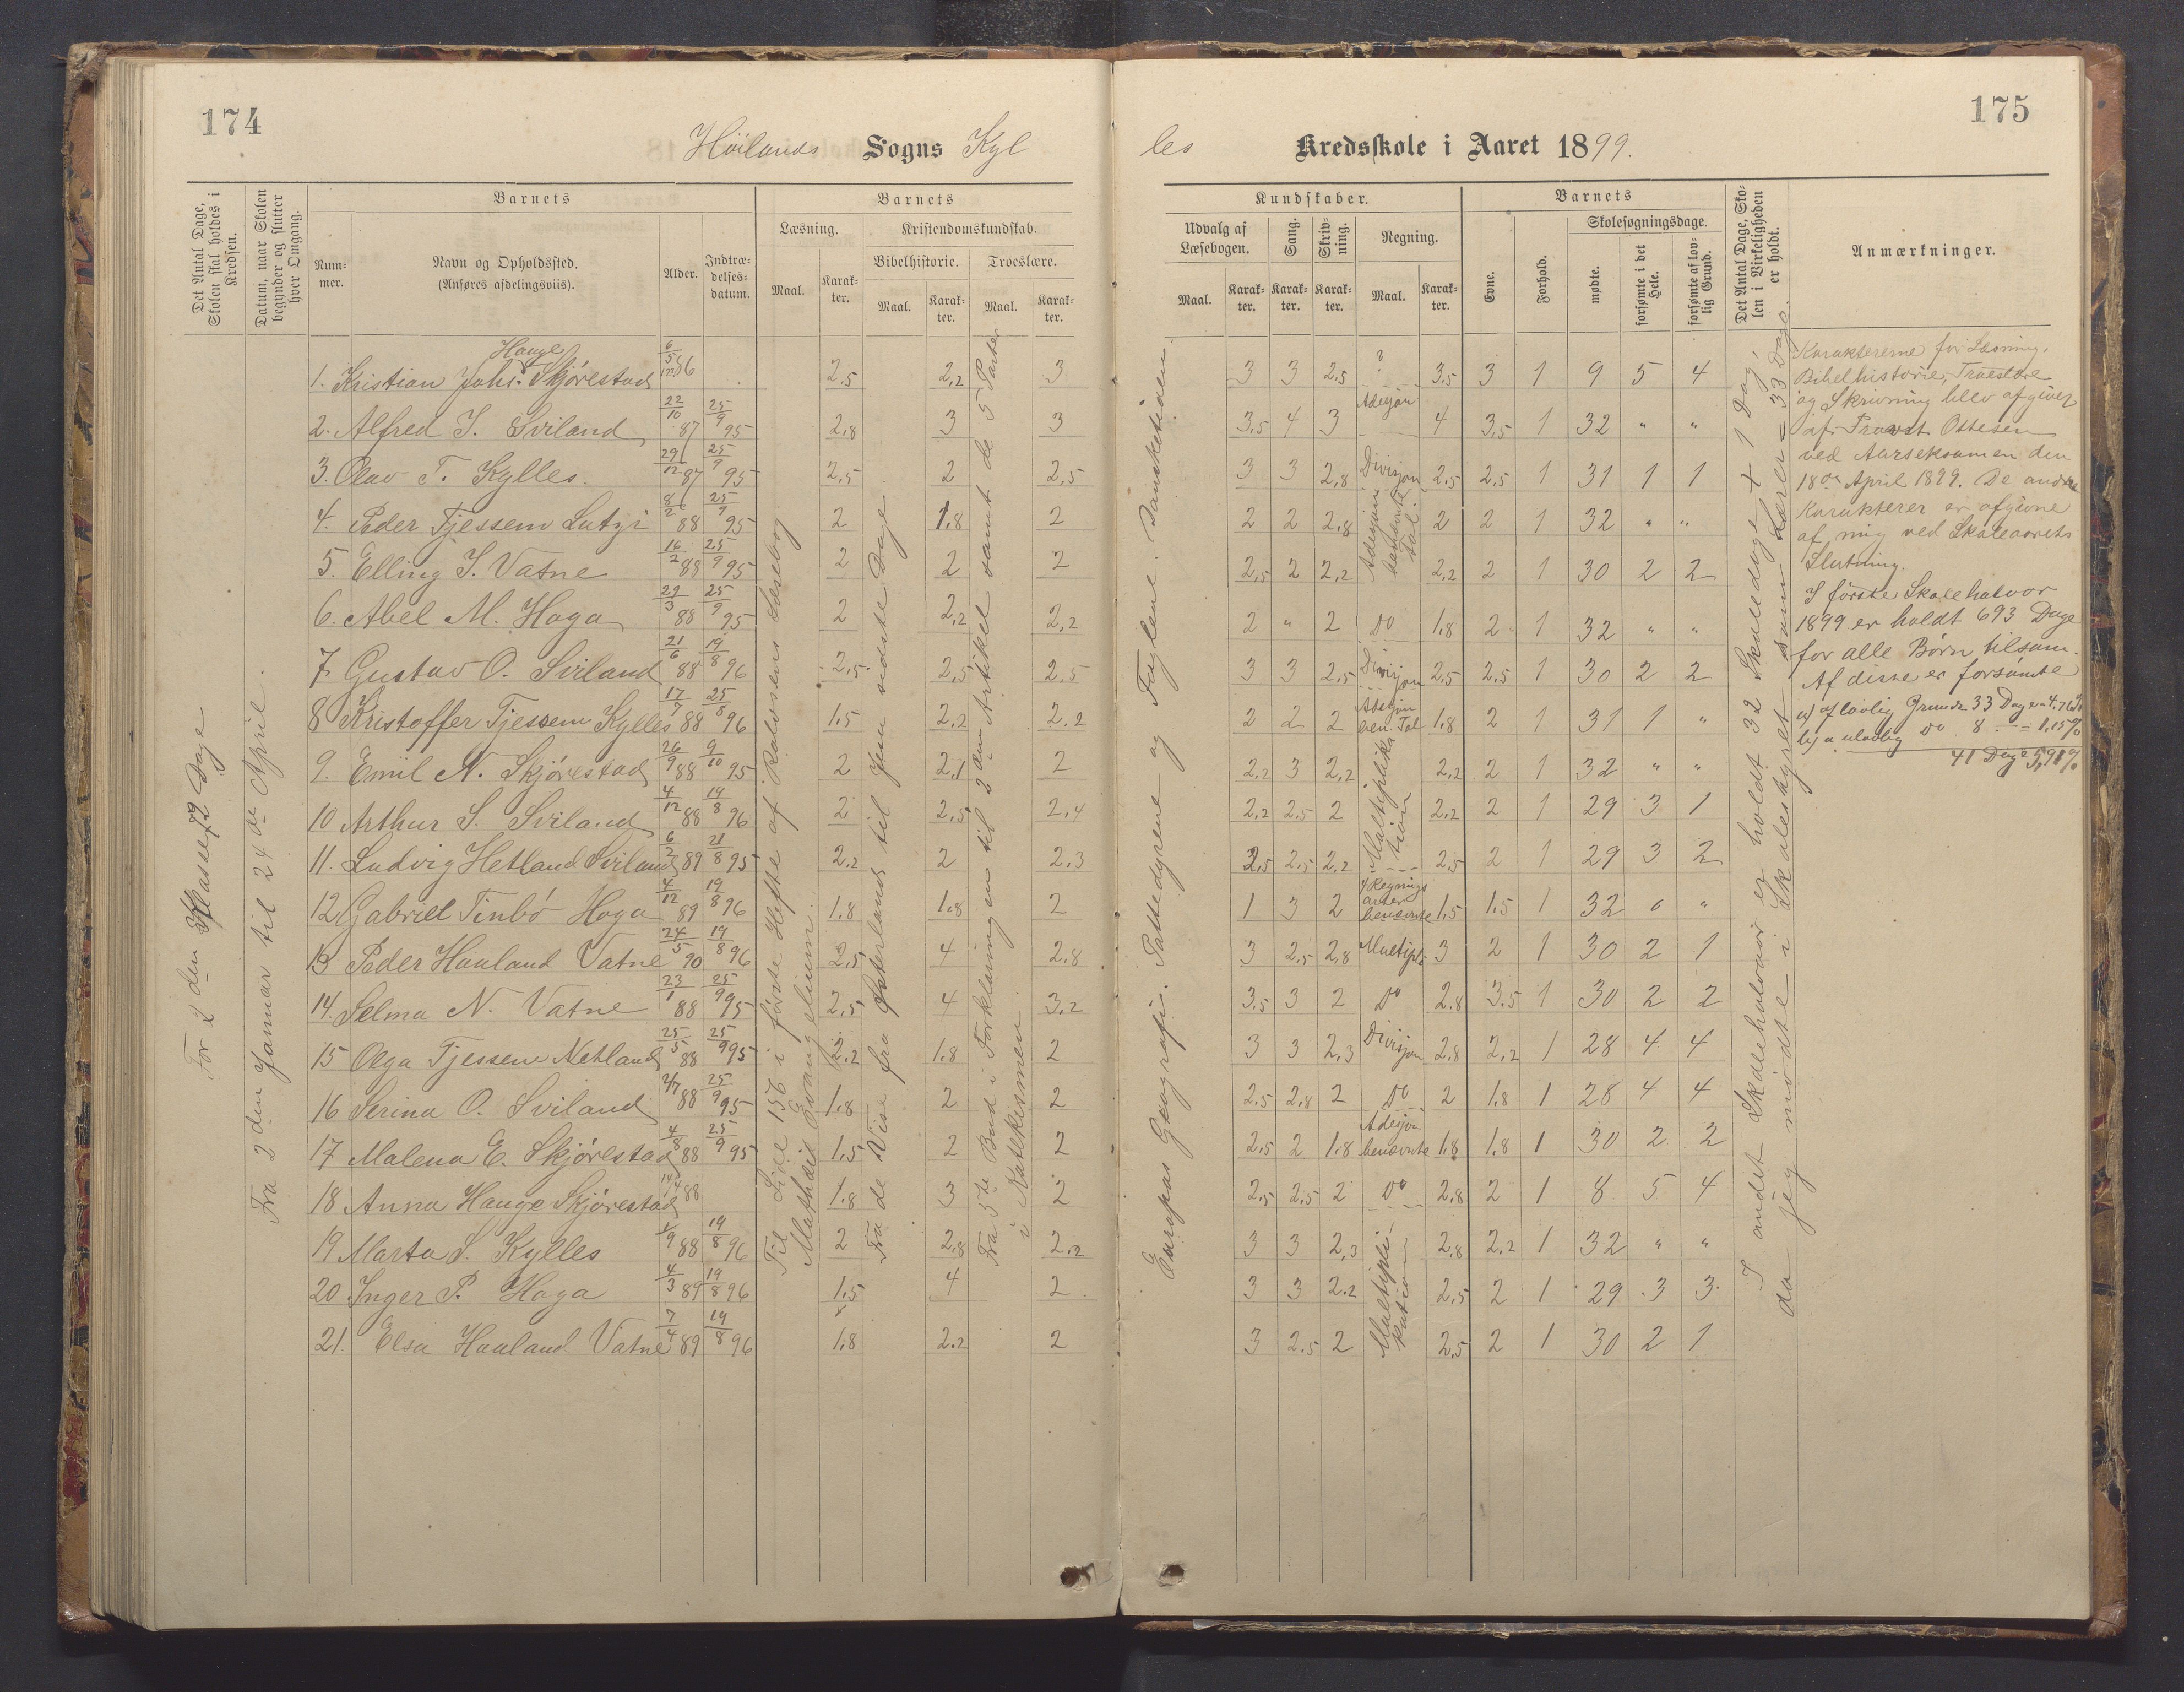 174
Höilands Sogns Kyl
Det Antal Dage, Skolen skal holdes i Kredsen.
Datum, naar Skolen begynder og slutter hver Omgang.
Barnets
Num-mer.
Navn og Opholdssted.
(Anføres afdelingsviis).
Alder.
Indtræ-delses-datum.
Barnets
Læsning.
Maal.
Karak-ter.
Kristendomskundskab.
Bibelhistorie.
Maal.
Karak-ter.
Troeslære.
Maal.
Karak-ter.
For 2den Klasse 72 Dage
Fra 2den Januar til 24de April.
Til Side 156 i første Hefte af Rolvsens Læsebog
Mathæi Evangelium.
Fra de Vise fra Østerland til Jesu sidste Dage.
Fra 5te Bud i Forklaringen til 2den Artikel samt de 5 Parter
i Katekismen
Hauge
1. Kristian Johs. Skjörestad 6/5 86 2,5 2,2 3
2. Alfred J. Sviland 22/10 87 25/9 95 2,8 3 3
3. Olav T. Kylles. 29/12 87 25/9 95 2,5 2 2,5
4. Peder Tjessem Lutzi 8/2 88 25/9 95 2 1.8 2
5. Elling J. Vatne 16/2 88 25/9 95 2 2 2
6. Abel M. Hoga 29/3 88 25/9 95 2 2,2 2,2
7. Gustav O. Sviland 21/6 88 19/8 96 2,5 2,5 2.5
8 Kristoffer Tjessem Kylles 17/7 88 25/8 96 1.5 2,2 2.2
9. Emil N. Skjörestad 26/9 88 9/10 95 2 2,1 2
10 Arthur S. Sviland 4/12 88 19/8 96 2 2,5 2,4
11. Ludvig Hetland Sviland 6/2 89 21/8 95 2,2 2 2,3
12 Gabriel Tinbö Hoga 4/12 89 19/8 96 1.8 1.8 2
13 Peder Haaland Vatne 24/5 90 19/8 96 2,5 4 2.8
14. Selma N. Vatne 23/1 88 25/9 95 2,5 4 3.2
15 Olga Tjessem Netland 25/5 88 25/9 95 2.2 1.8 2
16 Serina O. Sviland 2/7 88 25/9 95 1.8 2 2
17 Malena E. Skjörestad 4/8 88 25/9 95 1,5 2 2
18 Anna Hauge Skjörestad 88 1.8 3 2
19 Marta S. Kylles 1/9 88 19/8 96 2 2.8 2.2
20 Inger P. Hoga 4/3 89 19/8 96 1.5 4 2
21. Elsa Haaland Vatne 7/4 89 19/8 96 1.8 2.2 2
175
les Kredsskole i Aaret 1899.
Kundskaber.
Udvalg af Læsebogen.
Maal.
Karak-ter.
Sang.
Karak-ter.
Skriv-ning.
Karak-ter.
Regning.
Maal.
Karak-ter.
Barnets
Evne.
Forhold.
Skolesøgningsdage.
mødte.
forsømte i det Hele.
forsømte af lov-lig Grund.
Det Antal Dage, Sko-len i Virkeligheden er holdt.
Anmærkninger.
Europas Geografi. Pattedyrene og Fuglene. Dansketiden.
3 3 2.5 ? 3.5 3 1 9 5 4
3,5 4 3 Adisjon 4 3,5 1 32 " "
3 3 2,8 Divisjon 2,5 2,5 1 31 1 1
2 2 2,8 Adisjon benævnte Tal. 2 2 1 32 " "
2,5 2 2,2 2,2 2 1 30 2 2
2 " 2 Do 1.8 2 1 32 " "
3 3 2,5 Divisjon 2,5 2,5 1 30 2 2
2 2 2 Adisjon ben. Tal 1.8 2 1 31 1 "
2,2 3 2,2 Multiplikation 2,2 2 1 32 " "
2,2 2.5 2 2,2 2 1 29 3 1
2,5 2,5 2,2 2,5 2 1 29 3 2
1 3 2 4 Regningsarter benævnte 1,5 1.5 1 32 " "
3 2.5 2,8 Multipli 3 2 1 30 2 1
3.5 3 2 Do 2.8 3.5 1 30 2 2
3 3 2,3 Divisjon 2,8 2,2 1 28 4 4
2.5 2.8 2 Do 2 1.8 1 28 4 4
2,5 2 1.8 Adisjon benævnte 1.8 1.8 1 30 2 2
2.5 2,5 2 Do 2,8 2 1 8 5 4
3 3 2,3 Multiplikation 2,8 2.2 1 32 " "
3 3 2.2 2,5 2 1 29 3 3
3 2.5 2 2,5 2 1 30 2 1
I andet Skolehalvaar er holdt 32 Skoledage + 1 Dag,
da jeg mödte i Skolestyret som Lærer = 33 Dage.
Karaktererne for Læsning,
Bibelhistorie, Troeslære
og Skrivning blev afgivet
af Provst Ottesen
ved Aarseksamen den
18de April 1899. De andre
Karakterer er afgivne
af mig ved Skoleaarets
Slutning.
I første Skolehalvor
1899 er holdt 693 Dage
for alle Börn tilsam.
Af disse er forsömte
a) af lovlig Grund 33 Dage = 4,76%
b) " ulovlig Do 8 " = 1,15%
41 Dage 5,91%